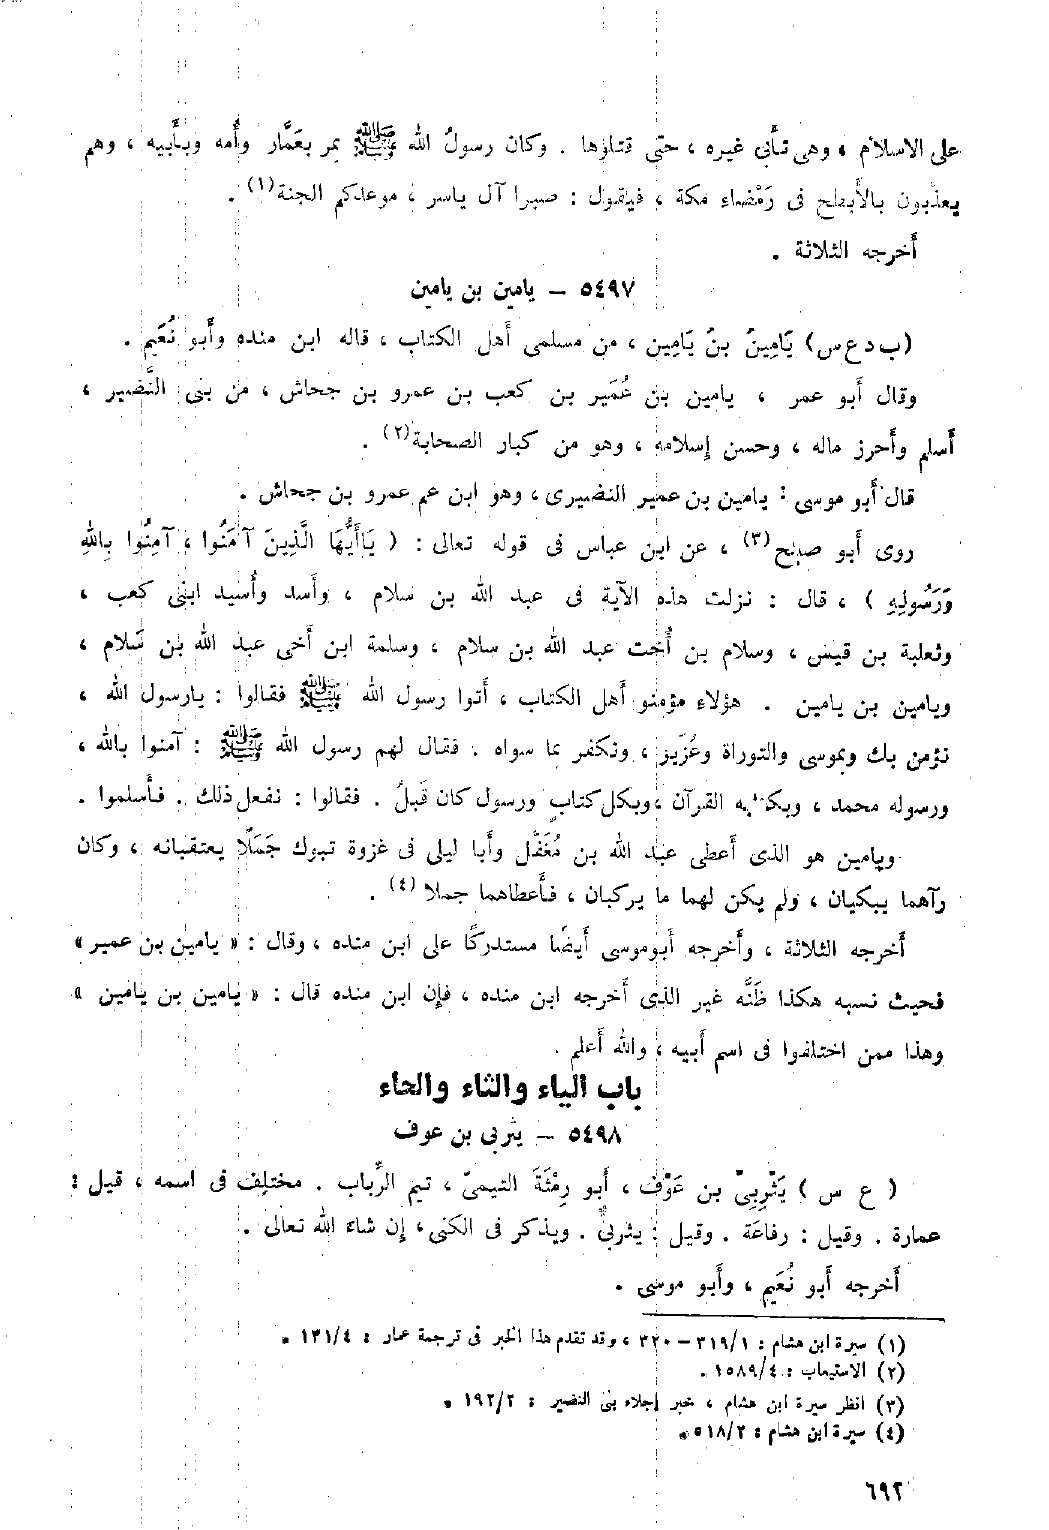 على الاسلام ، وهى تأبى غيره ، حتى قتلوها . وكان رسولُ الله ﷺ يمر بعَمَّار وأُمه وبأَبيه ، وهم
يعذَّبون بالأَبطح فى رَمْضاء مكة ، فيقول : صبرا آل ياسر ، موعدكم الجنة(١) .
أَخرجه الثلاثة .
٥٤٩٧ – يامين بن يامين
(ب د ع س) يَامِينُ بنُ يَامِين ، من مسلمى أَهل الكتاب ، قاله ابن منده وأَبو نُعَيم .
وقال أَبو عمر ، يامين بن عُمَير بن كعب بن عمرو بن جحاش ، من بنى النَّضير ،
أَسلم وأَحرز ماله ، وحسن إِسلامه ، وهو من كبار الصحابة(٢) .
قال أَبو موسى : يامين بن عمير النضيرى ، وهو ابن عم عمرو بن جحاش .
روى أَبو صالح(٣) ، عن ابن عباس فى قوله تعالى : ( يَاأَيُّهَا الَّذِينَ آمَنُوا ، آمِنُوا بِاللهِ
وَرَسُولِهِ ) ، قال : نزلت هذه الآية فى عبد الله بن سلام ، وأَسد وأُسيد ابنى كعب ،
وثعلبة بن قيس ، وسلام بن أُخت عبد الله بن سلام ، وسلمة ابن أَخى عبد الله بن سَلام ،
ويامين بن يامين . هؤلاء مؤمنو أَهل الكتاب ، أَتوا رسول الله ﷺ فقالوا : يارسول الله ،
نؤمن بك وبموسى والتوراة وعُزَيز ، ونكفر بما سواه . فقال لهم رسول الله ﷺ : آمنوا بالله ،
ورسوله محمد ، وبكتابه القرآن ، وبكل كتابٍ ورسول كان قَبلُ . فقالوا : نفعل ذلك . فأَسلموا .
ويامين هو الذى أَعطى عبد الله بن مُغَفَّل وأَبا ليلى فى غزوة تبوك جَمَلًا يعتقبانه ، وكان
رآهما يبكيان ، ولم يكن لهما ما يركبان ، فأَعطاهما جملا (٤) .
أَخرجه الثلاثة ، وأَخرجه أَبوموسى أَيضًا مستدركًا على ابن منده ، وقال : « يامين بن عمير »
فحيث نسبه هكذا ظَنَّه غير الذى أَخرجه ابن منده ، فإِن ابن منده قال : « يامين بن يامين »
وهذا ممن اختلفوا فى اسم أَبيه ، والله أَعلم .
باب الياء والثاء والحاء
٥٤٩٨ – يثربى بن عوف
( ع س ) يَثْرِبِىّ بن عَوْف ، أَبو رِمْثَةَ التيمىّ ، تيم الرِّباب . مختلف فى اسمه ، قيل :
عمارة . وقيل : رفاعَة . وقيل : يثربىٌّ . ويذكر فى الكنى ، إِن شاءَ الله تعالى .
أَخرجه أَبو نُعَيم ، وأَبو موسى .
(١) سيرة ابن هشام : ٣١٩/١ – ٣٢٠ ، وقد تقدم هذا الخبر فى ترجمة عمار : ١٣١/٤ .
(٢) الاستيعاب : ١٥٨٩/٤ .
(٣) انظر سيرة ابن هشام ، خبر إجلاء بنى النضير : ١٩٢/٢ .
(٤) سيرة ابن هشام : ٥١٨/٢ .
٦٩٢